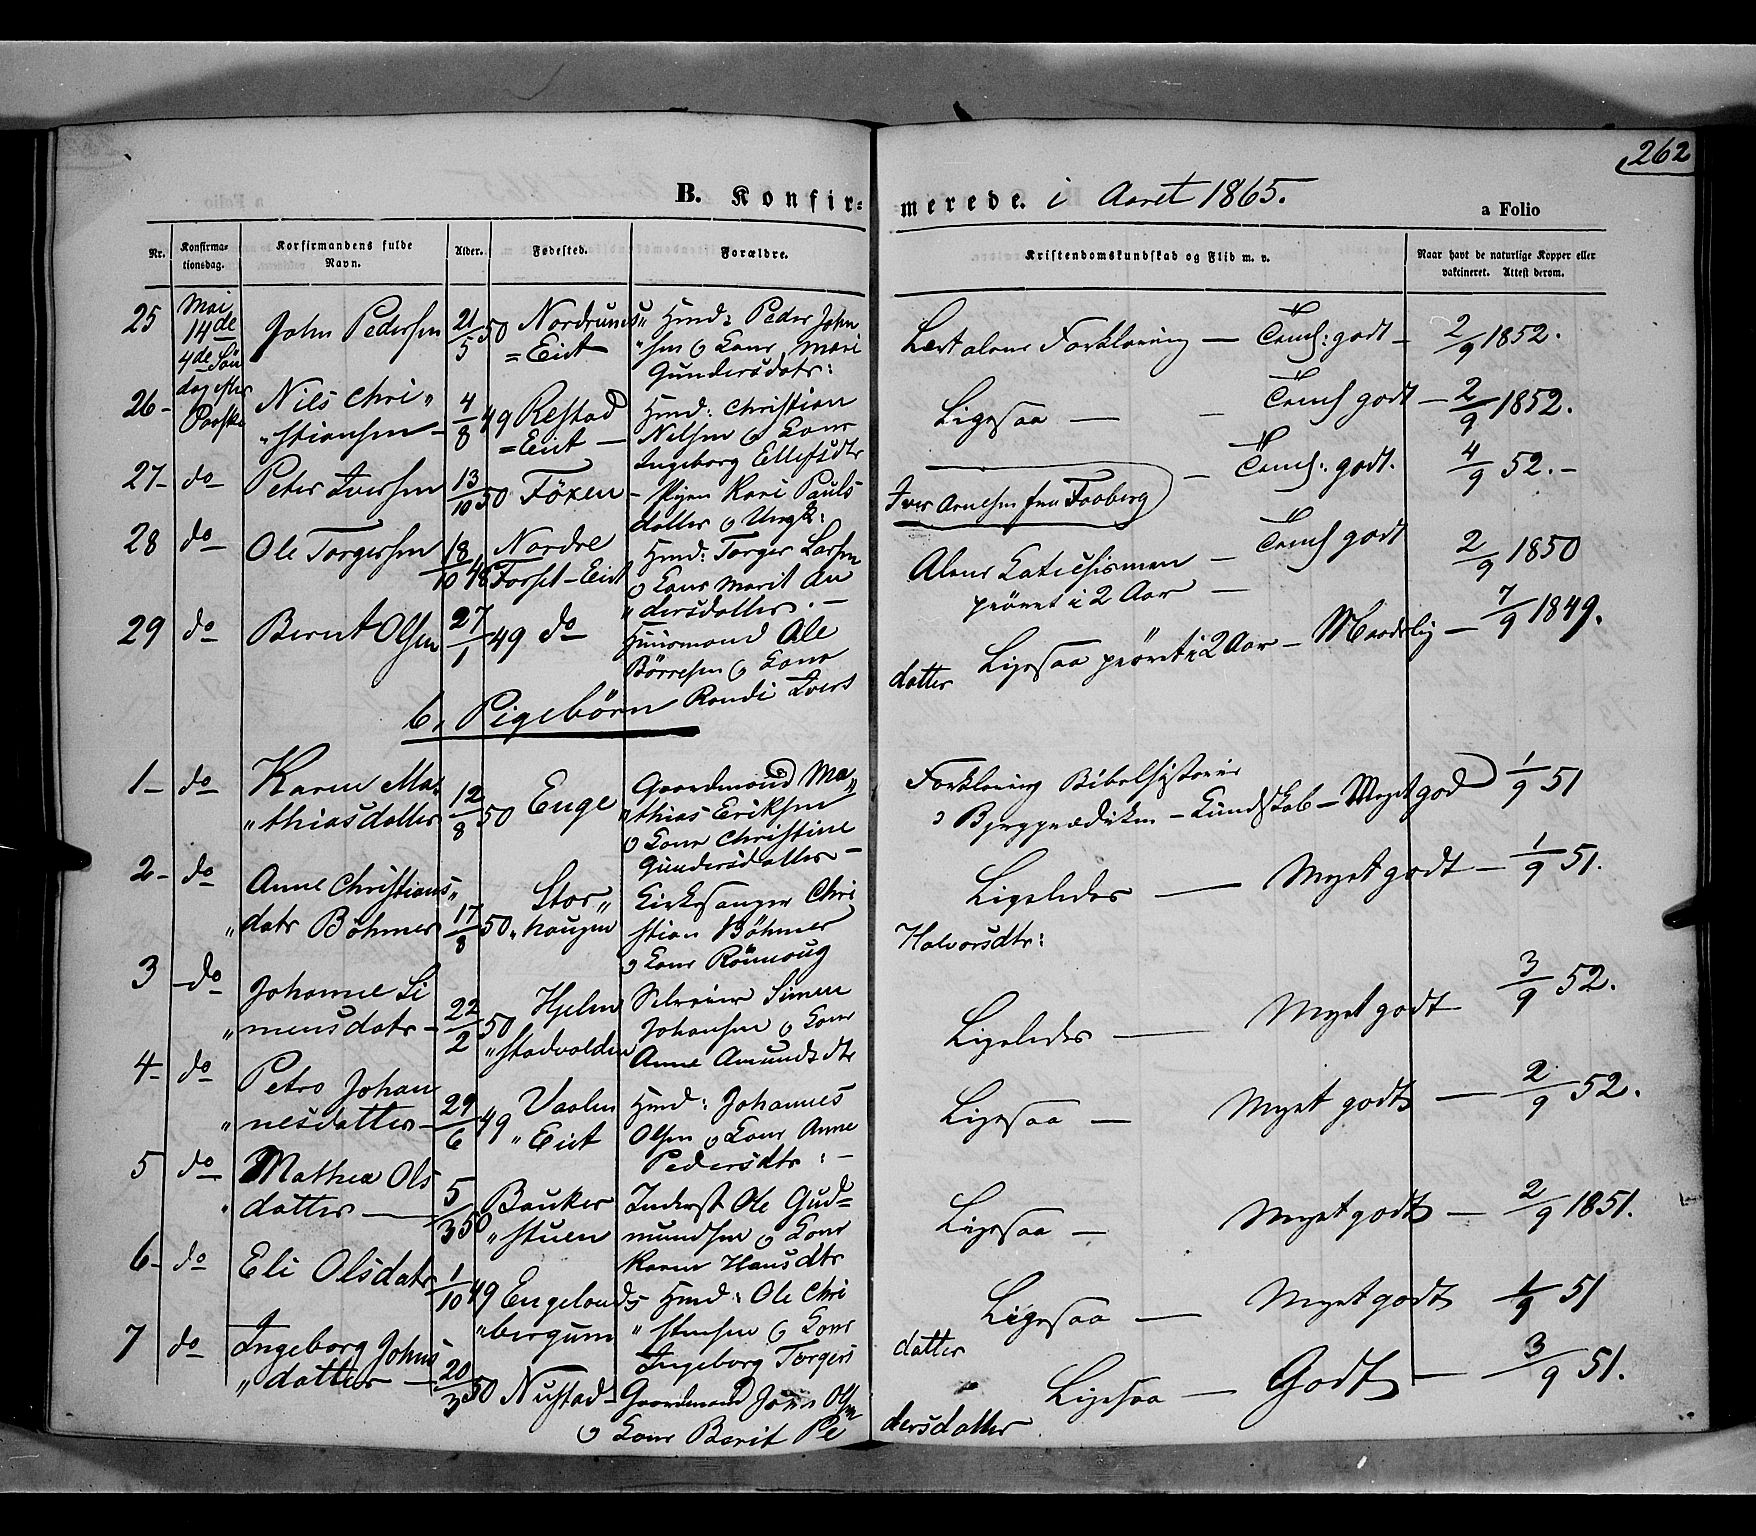 262
B. Konfirmerede. i Aaret 1865.
a Folio
Nr. Konfirmationsdag. Konfirmandens fulde Navn. Alder. Fødested. Forældre. Kristendomskundskab og Flid m. v. Naar havt de naturlige Kopper eller vakcineret. Attest derom.
25 Mai 14de 4de Søndag efter Paaske John Pedersen 21/5 50 Nordrums" =Eiet Hmd: Peder John"sen o Kone Mari Gundersdatr: Læst alene Forklaring — Tems: godt — 2/9 1852.
26 — Nils Chri" "stiansen — 4/8 49 Restad =Eiet — Hmd: Christian Nelsen o Kone Ingeborg Ellefsdtr Ligesaa — — Tems godt — 2/9 1852.
27 — do Peter Iversen 13/10 50 Föxen — Pigen Kari Pauls datter o Ungk: Iver Arnesen fra Faaberg — Tems: godt. 4/9 52. —
28 do Ole Torgersen 18/10 48 Nordre Forset — Eiet Hmd: Torger Larsen o Kone Marit An "dersdatter. — Alene Katechismen — prövet i 2 Aar — Tems godt 2/9 1850
29 do Bernt Olsen 27/1 49 do Huusmand Ole Börresen o Kone Randi Ivers datter Ligesaa prövet i 2 Aar — Maadelig — 7/9 1849.
b. Pigebörn
1 — do Karen Ma" "thiasdatter 12/8 50 Enge Gaardmand Ma" "thias Eriksen o Kone Christine Gundersdatter — Forklaring Bibelhistorie o Bjergprædiken — Kundskab — Meget god 1/9 51
2 — do Anne Christians" "datr Böhmer 17/8 50 Stor" "haugen Kirkesanger Chri stian Böhmer o Kone Rönnoug Halvorsdtr: Ligeledes — Meget godt — 1/9 51.
3 — do Johanne Si "mensdatr — 22/2 50 Hjelm "stadvolden Simen Johansen o Kone Anne Amundsdtr Ligeledes — Meget godt 3/9 52.
4 — do Petra Johan "nesdatter — 29/6 49 Vaalen "Eiet Hmd: Johannes Olsen o Kone Anne Pedersdtr: — Ligesaa — Meget godt — 2/9 52.
5 do Mathea Ols "datter — 5/3 50 Bauker "stuen Inderst Ole Gud= mundsen o Kone Karen Hansdtr Ligesaa — Meget godt — 2/9 1851.
6 — do Eli Olsdatr 1/10 49 Engelands "bergum Hmd: Ole Chri "stensen o Kone Ingeborg Torgers datter Ligesaa — Meget godt 1/9 51
7 do Ingeborg Johns "datter — 20/3 50 Nustad — Gaardmand John Olsen o Kone Barit Pe dersdatter Ligesaa — Godt — 3/9 51.